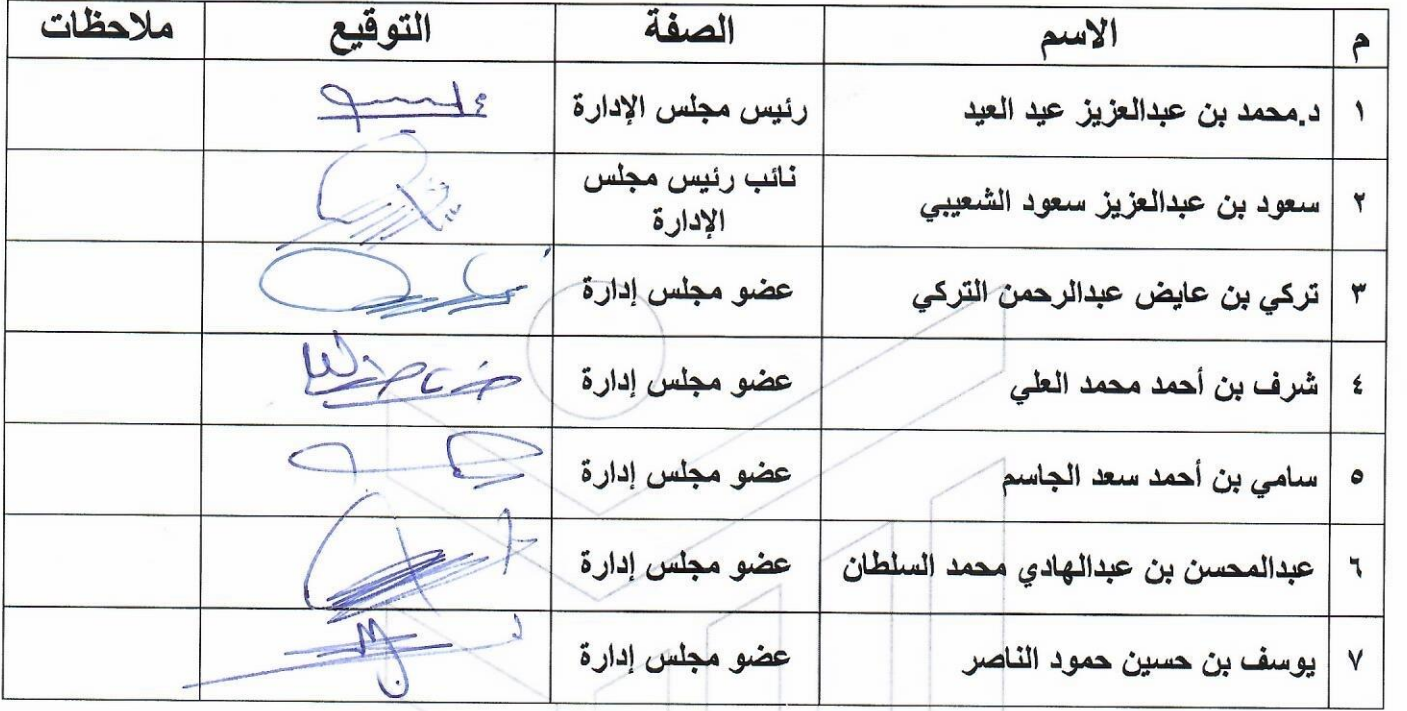 م الاسم الصفة التوقيع ملاحظات
١ د.محمد بن عبدالعزيز عيد العيد رئيس مجلس الإدارة
٢ سعود بن عبدالعزيز سعود الشعيبي نائب رئيس مجلس الإدارة
٣ تركي بن عايض عبدالرحمن التركي عضو مجلس إدارة
٤ شرف بن أحمد محمد العلي عضو مجلس إدارة
٥ سامي بن أحمد سعد الجاسم عضو مجلس إدارة
٦ عبدالمحسن بن عبدالهادي محمد السلطان عضو مجلس إدارة
٧ يوسف بن حسين حمود الناصر عضو مجلس إدارة